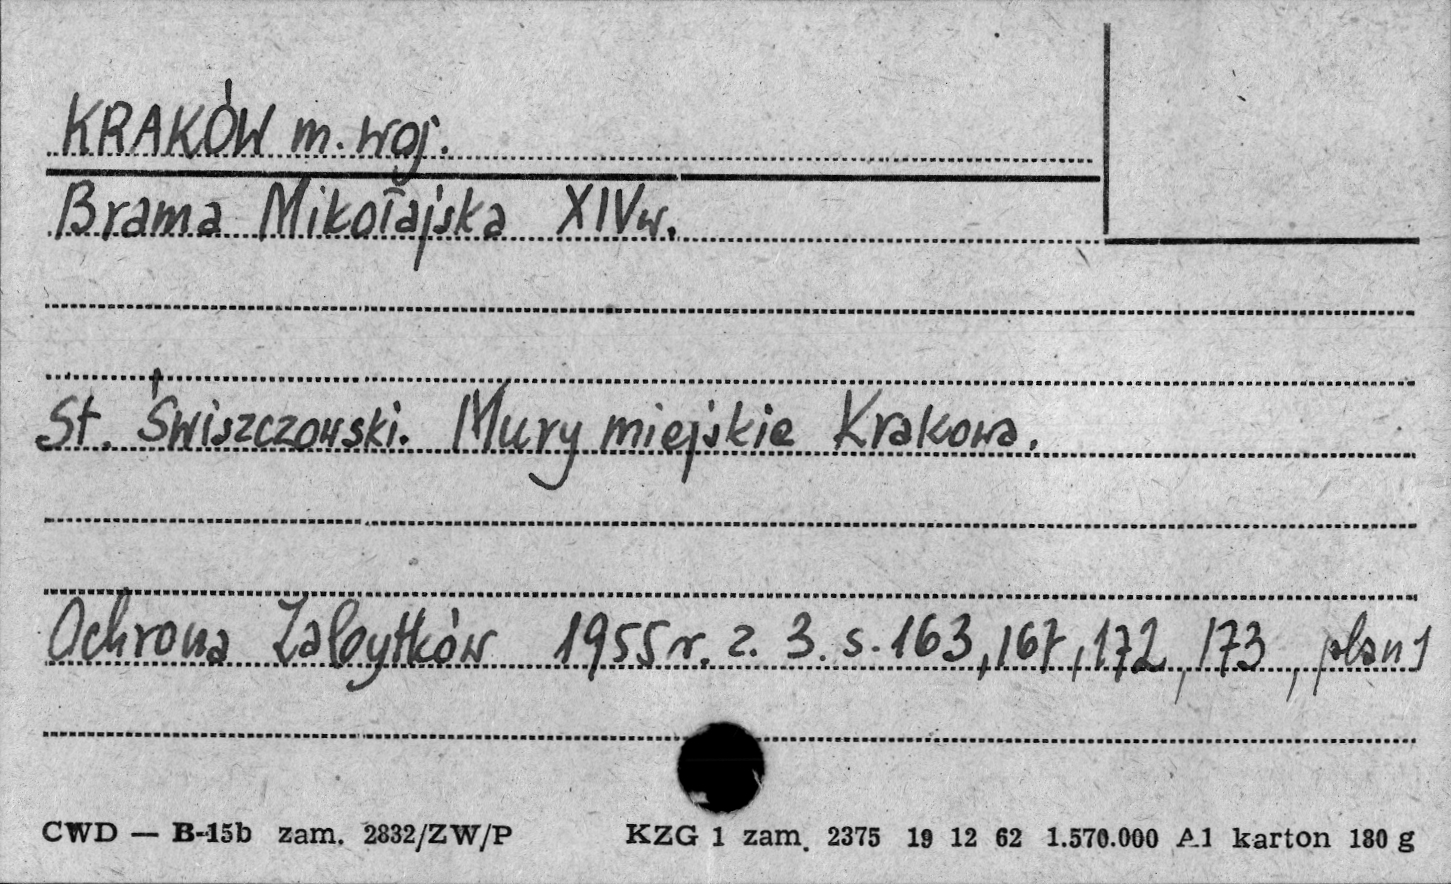 KRAKÓW m. woj.
Brama Mikołajska XIVw.
St. Świszczowski. Mury miejskie Krakowa.
Ochrona Zabytków 1955r. z. 3. s. 163, 167, 172, 173, plan 1
CWD — B-15b zam. 2832/ZW/P KZG 1 zam. 2375 19 12 62 1.570.000 A1 karton 180 g